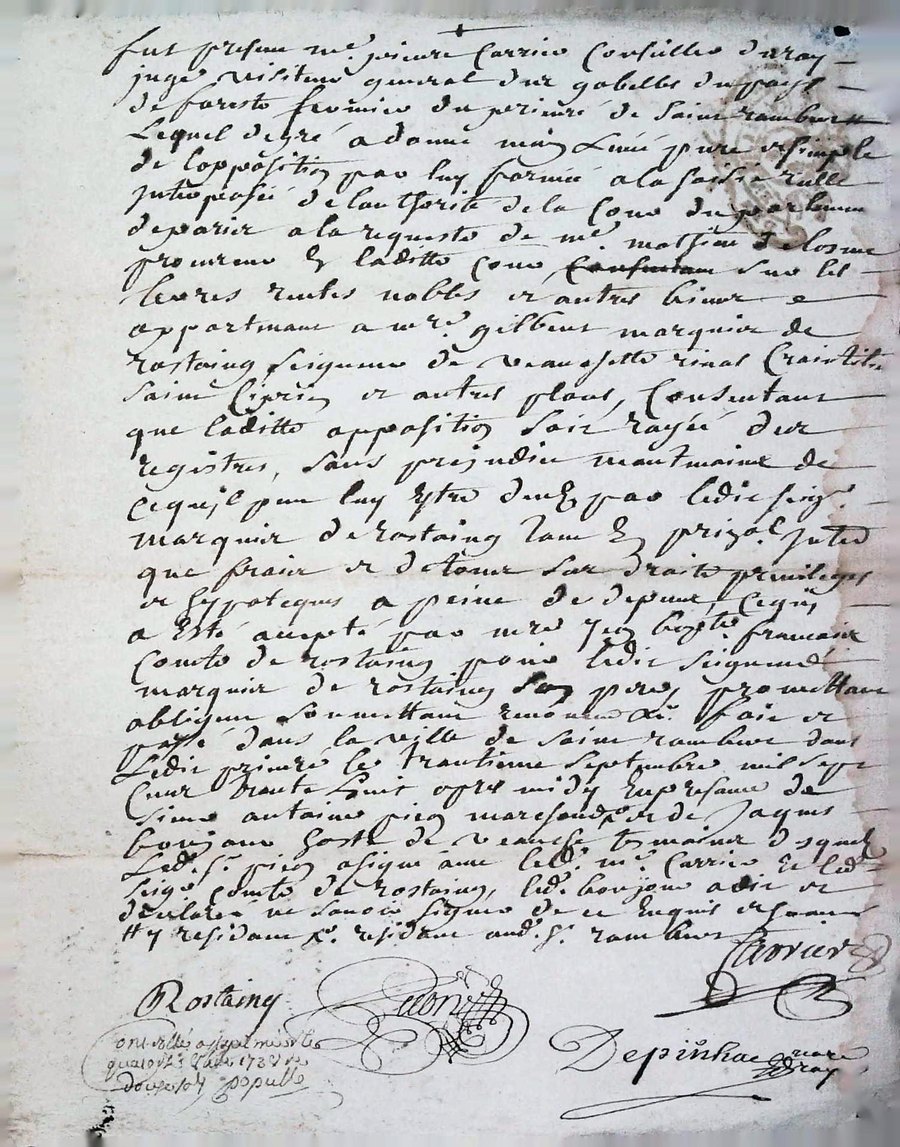 fut presen mre. pierre Carrier Conseiller du roy
juge visiteur general des gabelles du pays
de forests fermier du prieuré de Saint rambert #
Lequel de gré a donné main Levée pure et simple
de lopposition par luy formée a la saisie reelle
Interposée de lauthorité de la Cour du parlemen
de paris a la requeste de mre. mathieu Delosme
procureur En laditte Cour sur les
terres rentes nobles et autres biens
appartenant a mre. gilbert marquis de
rostaing seigneur de veauchette rivas Craintilie
saint Ciprien et autres places, Consentant
que laditte opposition soit rayée des
registres, sans prejudice neantmoins de
Cequ'il peut luy Estre deub par ledit seigr.
marquis de rostaing tant En prizal. Interes
que frais et de tous ses droits privileges
et hypoteques a peine de depens, Cequi
a Esté accepté par mre Jean bapte. francois
Comte de rostaing pour ledit seigneur
marquis de rostaing Son pere, promettant
obligeant soumettant renonceant &c. fait et
passé dans la ville de saint rambert dans
Ledit prieuré le trantieme septembre mil sept
Cent trante huit apres midy En presence de
sieur antoine pien marchand et de Jaques
bonjour hoste de veauche temoins desquels
Led. sr. pien a signé avec led. mre. Carrier et led.
seigr. Comte de rostaing, led. bonjour a dit et
declaré ne savoir signer de ce Enquis et sommé
# y residant &c. residant aud. st. rambert
Carrier
Rostaing
Depinhac nore
Royal
Controllé a St rambert le
quatorze 8bre 1738 Reçu
douze sols